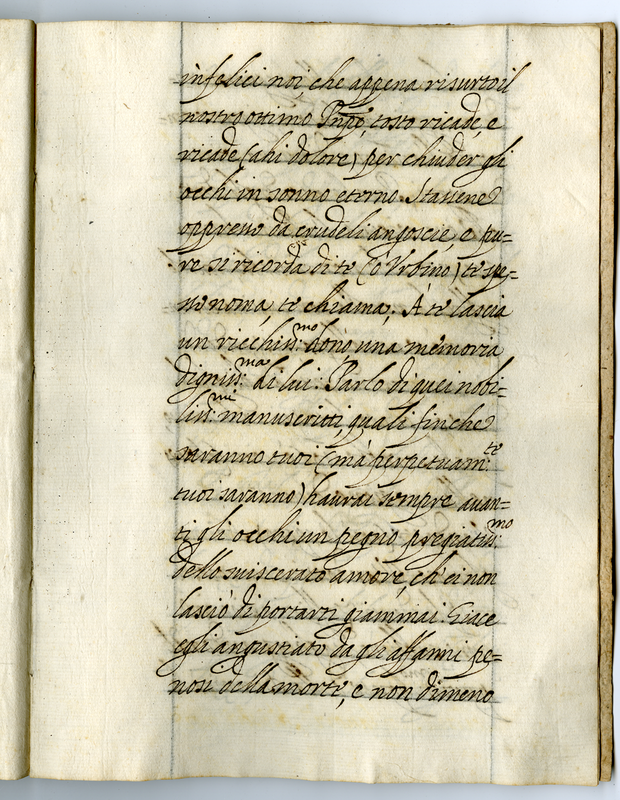 infelici noi, che appena risurto il
nostro ottimo Pnpe, tosto ricade, e
ricade (ahi dolore) per chiuder gli
occhi in sonno eterno. Stassene
oppresso da crudeli angoscie, e pu=
re si ricorda di te (ò Vrbino) te spe=
sso noma, te chiama, À te lascia
un ricchiss:mo dono, una memoria
digniss:ma di lui: Parlo di quei nobi=
liss:mi manuscritti, quali finche
saranno tuoi (mà perpetuam:te
tuoi saranno) haurai sempre auan=
ti gli occhi un pegno pregiatiss:mo
dello suiscerato amore, ch'ei non
lasciò di portarti giammai. Giace
egli angustiato da gli affanni pe=
nosi della morte, e non dimeno